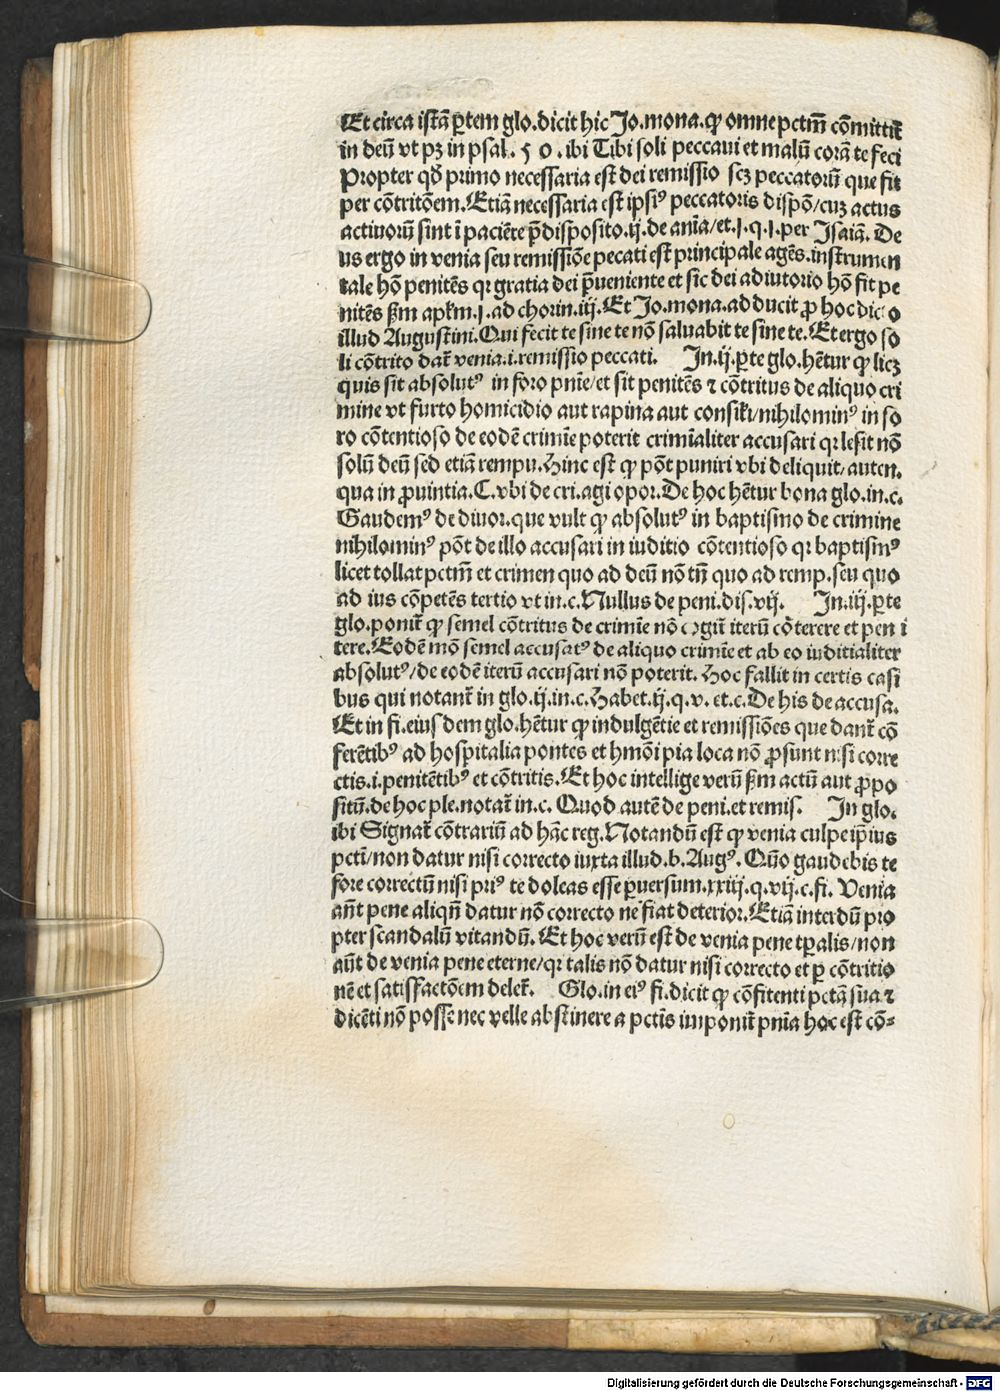 Et circa istã ꝑtem glo.dicit hic Jo.mona.ꝙ omne pctm̃ cõmittit̃
in deũ vt pꝫ in psal.50.ibi Tibi soli peccaui et malũ corã te feci
Propter qđ primo necessaria est dei remissio scꝫ peccatorũ que fit
per cõtritõem.Etiã necessaria est ipsiꝰ peccatoris dispõ/cuꝫ actus
actiuorũ sint ĩ paciẽte p̃disposito.ij.de anĩa/et.j.q.j.per Jsaiã. De
us ergo in venia seu remissiõe pecati est principale agẽs.instrumen
tale hõ penitẽs qꝛ gratia dei p̃ueniente et sic dei adiutorio hõ fit pe
nitẽs ẜm apĩm.j.ad chorin.iij.Et Jo.mona.adducit ꝓ hoc dicto
illud Augustini.Qui fecit te sine te nõ saluabit te sine te.Et ergo so
li cõtrito dat̃ venia.i.remissio peccati. Jn.ij.ꝑte glo.hẽtur ꝙ licꝫ
quis sit absolutꝰ in foro pnĩe/et sit penitẽs ⁊ cõtritus de aliquo cri
mine vt furto homicidio aut rapina aut consiĩi/nihilominꝰ in fo
ro cõtentioso de eodẽ crimĩe poterit crimĩaliter accusari qꝛ lesit nõ
solũ deũ sed etiã rempu.Hinc est ꝙ põt puniri vbi deliquit/auten.
qua in ꝓuintia.C.vbi de cri.agi opor.De hoc hẽtur bona glo.in.c.
Gaudemꝰ de diuor.que vult ꝙ absolutꝰ in baptismo de crimine
nihilominꝰ põt de illo accusari in iuditio cõtentioso qꝛ baptismꝰ
licet tollat pctm̃ et crimen quo ad deũ nõ tñ quo ad remp.seu quo
ad ius cõpetẽs tertio vt in.c.Nullus de peni.dis.vij. Jn.iij.ꝑte
glo.ponit̃ ꝙ semel cõtritus de crimĩe nõ cogit̃ iterũ cõterere et peni
tere.Eodẽ mõ semel accusatꝰ de aliquo crimĩe et ab eo iuditialiter
absolutꝰ/de eodẽ iterũ accusari nõ poterit.Hoc fallit in certis casi
bus qui notant̃ in glo.ij.in.c.Habet.ij.q.v.et.c.De his de accusa.
Et in fi.eiusdem glo.hẽtur ꝙ indulgẽtie et remissiões que dant̃ cõ
ferẽtibꝰ ad hospitalia pontes et hmõi pia loca nõ ꝓsunt nisi corre
ctis.i.penitẽtibꝰ et cõtritis.Et hoc intellige verũ ẜm actũ aut ꝓpo
sitũ.de hoc ple.notat̃ in.c.Quod autẽ de peni.et remis. Jn glo.
ibi Signat̃ cõtrariũ ad hãc reg.Notandũ est ꝙ venia culpe ip̃ius
pcti/non datur nisi correcto iuxta illud.b.Augꝰ.Qũo gaudebis te
fore correctũ nisi priꝰ te doleas esse ꝑuersum.xxiij.q.vij.c.fi. Venia
añt pene aliqñ datur nõ correcto ne fiat deterior.Etiã interdũ pro
pter scandalũ vitandũ.Et hoc verũ est de venia pene tꝑalis/non
aũt de venia pene eterne/qꝛ talis nõ datur nisi correcto et ꝑ cõtritio
nẽ et satisfactõem delet̃. Glo.in eiꝰ fi.dicit ꝙ cõfitenti pctã sua ⁊
dicẽti nõ posse nec velle abstinere a pctĩs imponit̃ pnĩa hoc est cõ⸗
Digitalisierung gefördert durch die Deutsche Forschungsgemeinschaft - DFG